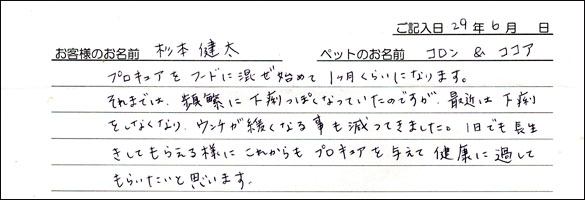 ご記入日 29年 6月 日
お客様のお名前 杉本 健太 ペットのお名前 コロン & ココア
プロキュアをフードに混ぜ始めて1ヶ月くらいになります。
それまでは、頻繁に下痢っぽくなっていたのですが、最近は下痢
をしなくなり、ウンチが緩くなる事も減ってきました。1日でも長生
きしてもらえる様にこれからもプロキュアを与えて健康に過して
もらいたいと思います。